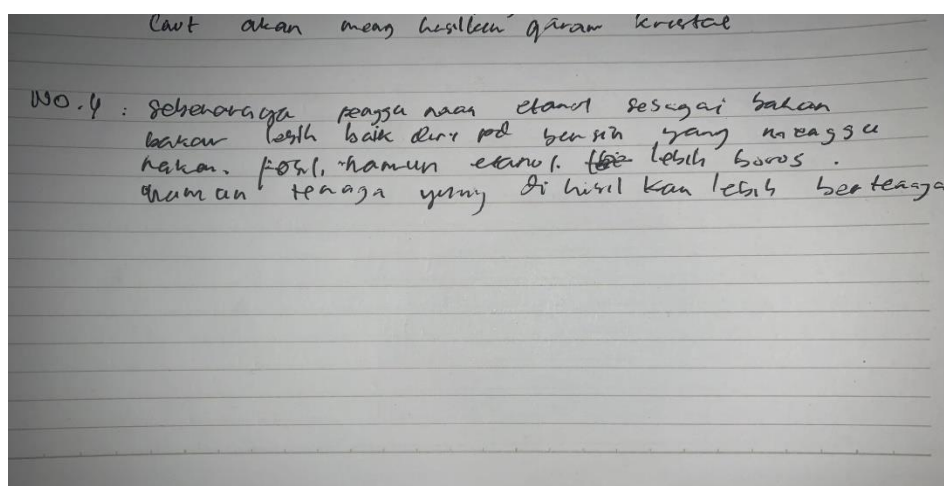 laut akan meng hasilkan garam kristal
No.4 : Sebenarnya penggu naan etanol sebagai bahan
bakar lebih baik dari pd bensin yang menggu
nakan. Fosil, namun etanol. lebih boros .
namun tenaga yang di hasil kan lebih bertenaga